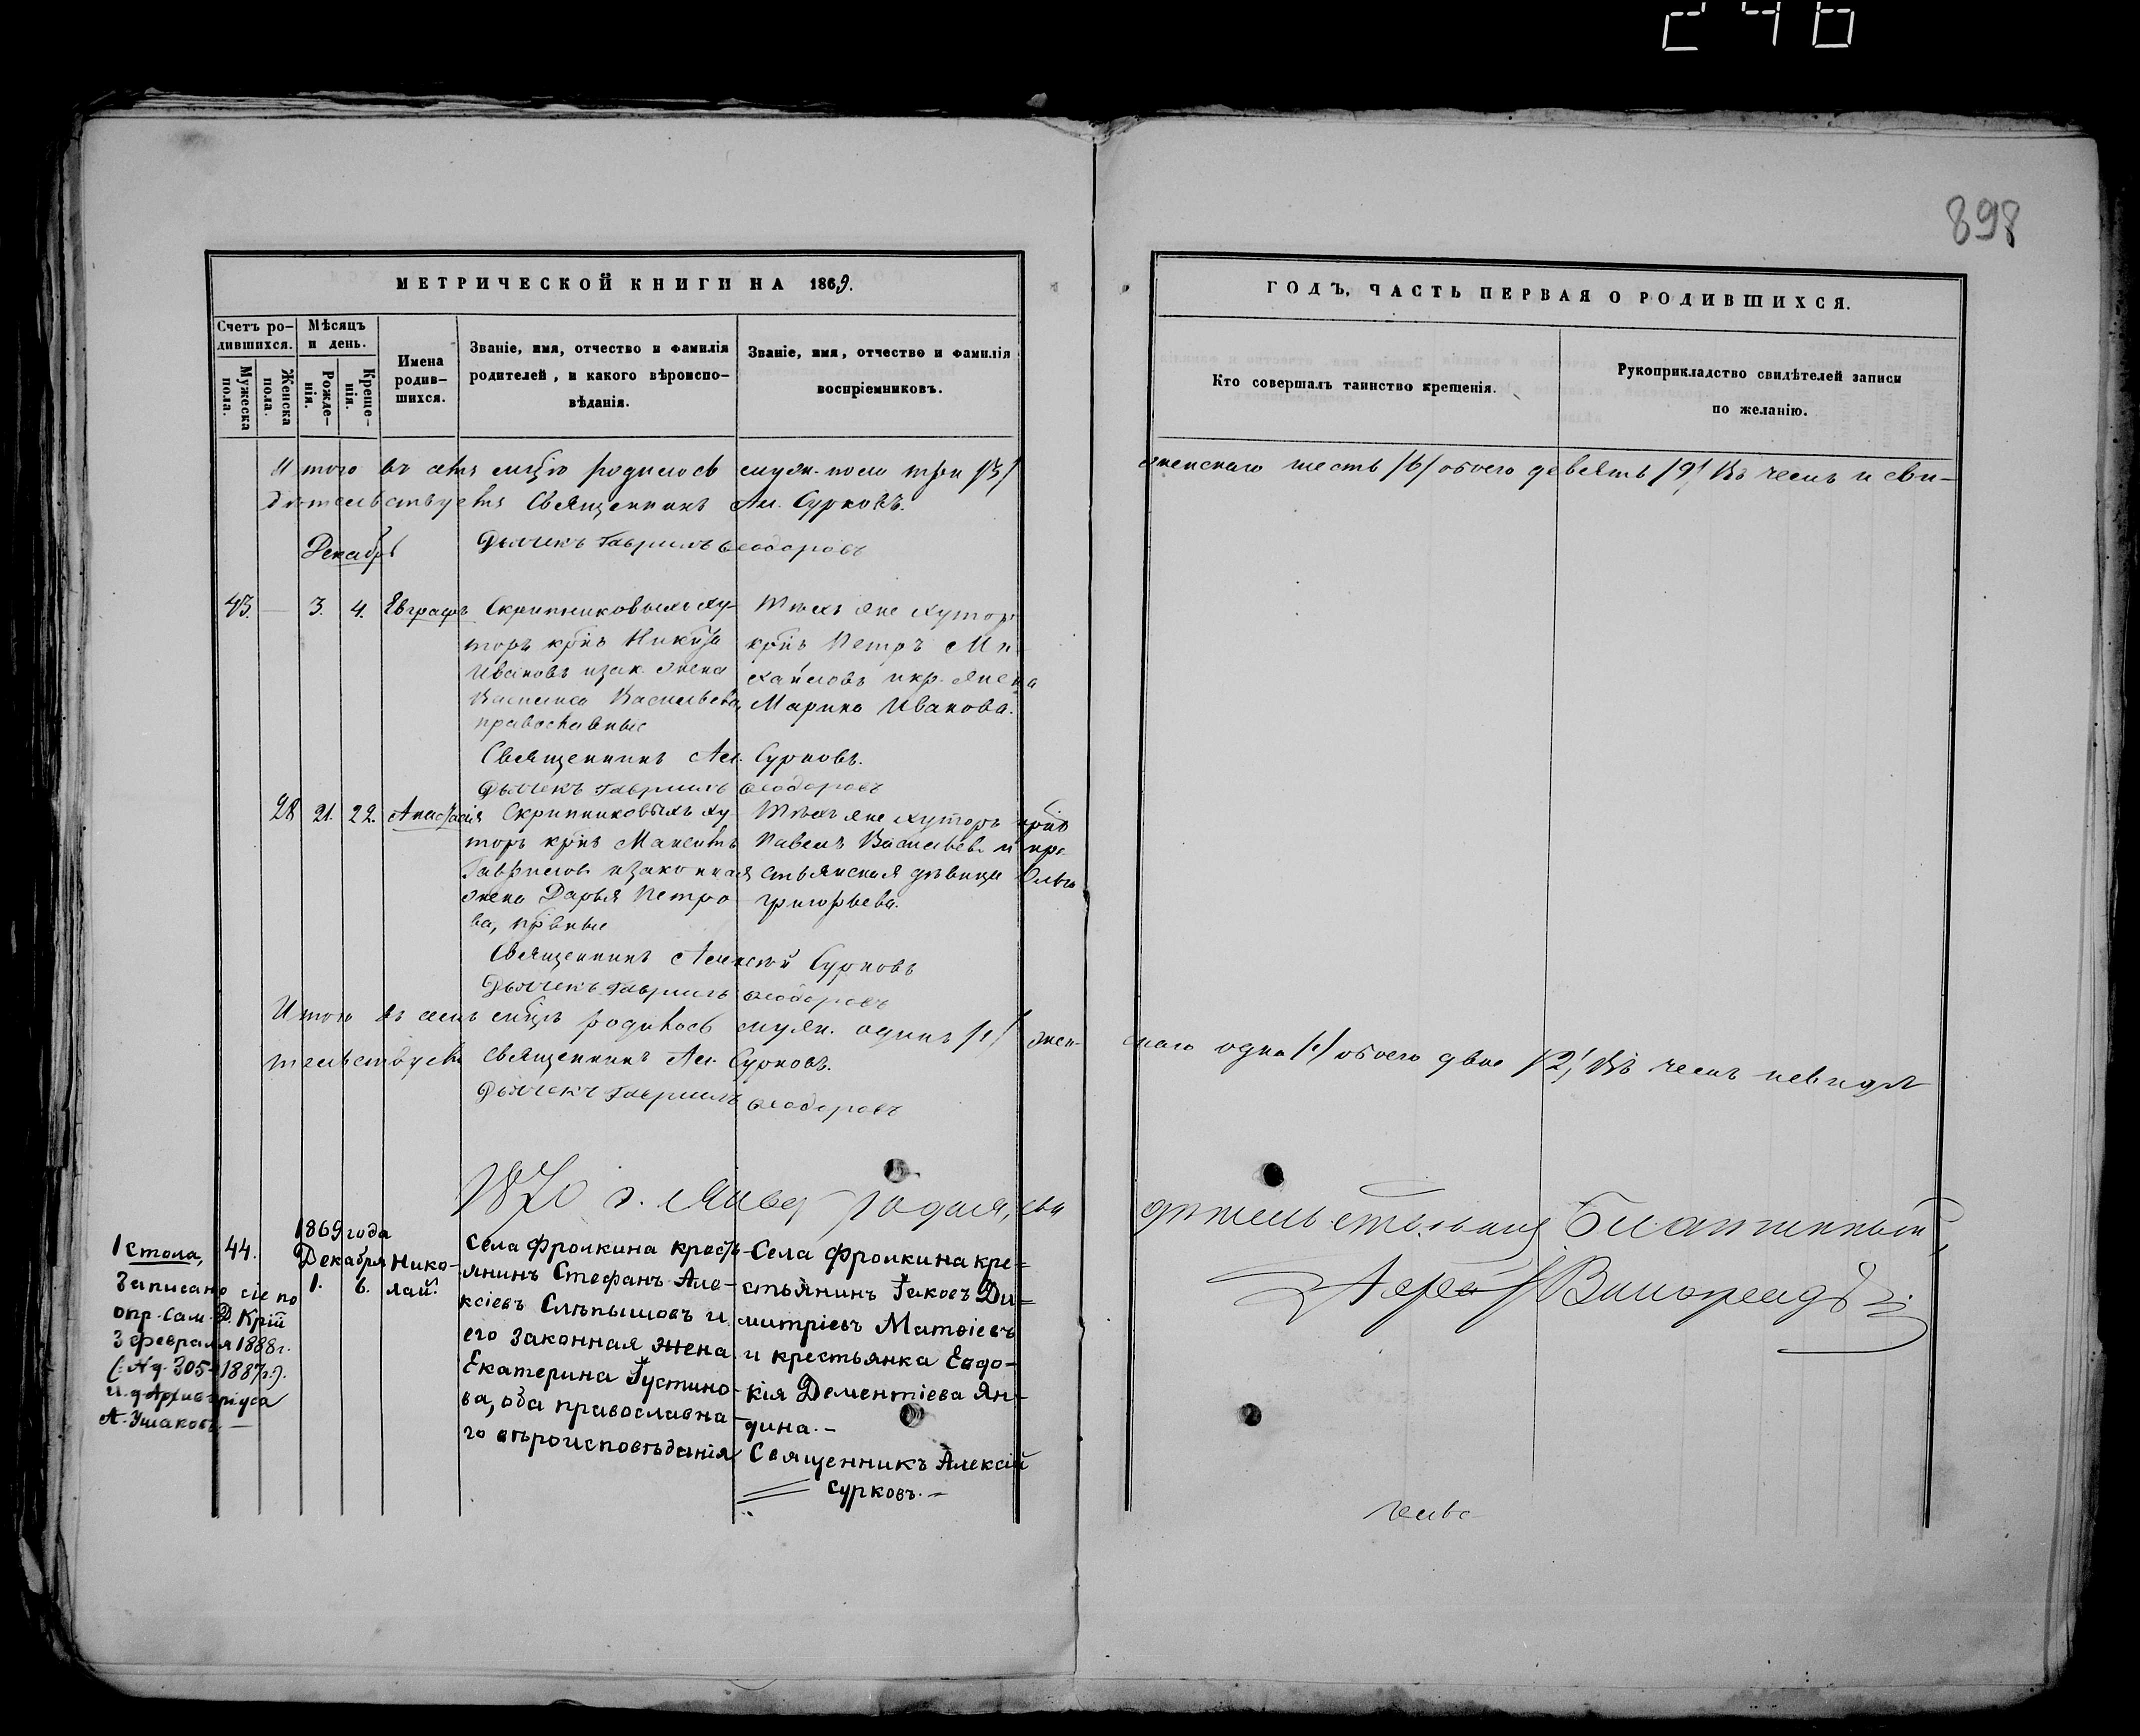 246
898
МЕТРИЧЕСКОЙ КНИГИ НА 1869.
ГОДЪ, ЧАСТЬ ПЕРВАЯ О РОДИВШИХСЯ.
Счетъ ро-
дившихся.
Мужеска
пола.
Женска
пола.
Мѣсяцъ
и день.
Рожде-
нія.
Креще-
нія.
Имена
родив-
шихся.
Званіе, имя, отчество и фамилія
родителей, и какого вѣроиспо-
вѣданія.
Званіе, имя, отчество и фамилія
воспріемниковъ.
Кто совершалъ таинство крещенія.
Рукоприкладство свидѣтелей записи
по желанію.
Итого въ семъ мѣсяцѣ родилось муж. пола три /3/ женскаго шесть /6/ обоего девять /9/ Въ чемъ и сви-
дѣтельствуетъ Священникъ Ал. Сурковъ.
Дьячекъ Гавріилъ Ѳеодоровъ
Декабрь
43. — 3. 4. Евграфъ
Скрипниковыхъ ху-
торъ крнъ Никита
Ивановъ и зак. жена
Василиса Васильева,
православные
Тѣхъ же хутор.
крнъ Петръ Ми-
хайловъ и кр. жена
Марина Иванова.
Священникъ Ал. Сурковъ.
Дьячекъ Гавріилъ Ѳеодоровъ
28 21. 22. Анастасія
Скрипниковыхъ ху-
торъ крнъ
Гаврилов. и законная
жена Дарья Петро
ва, првные
Тѣхъ же хуторъ крнъ
Павелъ Васильев. и кре
стьянская дѣвица Ольга
Григорьева.
Священникъ Алексій Сурковъ
Дьячекъ Гавріилъ Ѳеодоровъ
Итого въ семъ мѣсяцѣ родилось муж. одинъ /1/ жен- скаго одна /1/ обоего двое /2/ Въ чемъ
тельствуетъ священникъ Ал. Сурковъ.
Дьячекъ Гавріилъ Ѳеодоровъ
1870 г.
Благочинный,
Виноградъ
1 стола,
Записано сіе по
опр. Сам. Д. Крій
3 февраля 1888 г.
(: №д. 305 – 1887 г.:).
И. д. Архиваріуса
А. Ушаковъ. —
44.
1869 года
Декабря
1. 6.
Нико-
лай.
Села Фролкина кресть-
янинъ Стефанъ Але-
ксіевъ Слѣпышовъ и
его законная жена
Екатерина Іустино-
ва, оба православна-
го вѣроисповѣданія
Села Фролкина кре=
стьянинъ Іаковъ Ди=
митріевъ Матѳіевъ
и крестьянка Евдо-
кія Дементіева Ян-
дина. –
Священникъ Алексій
Сурковъ. –